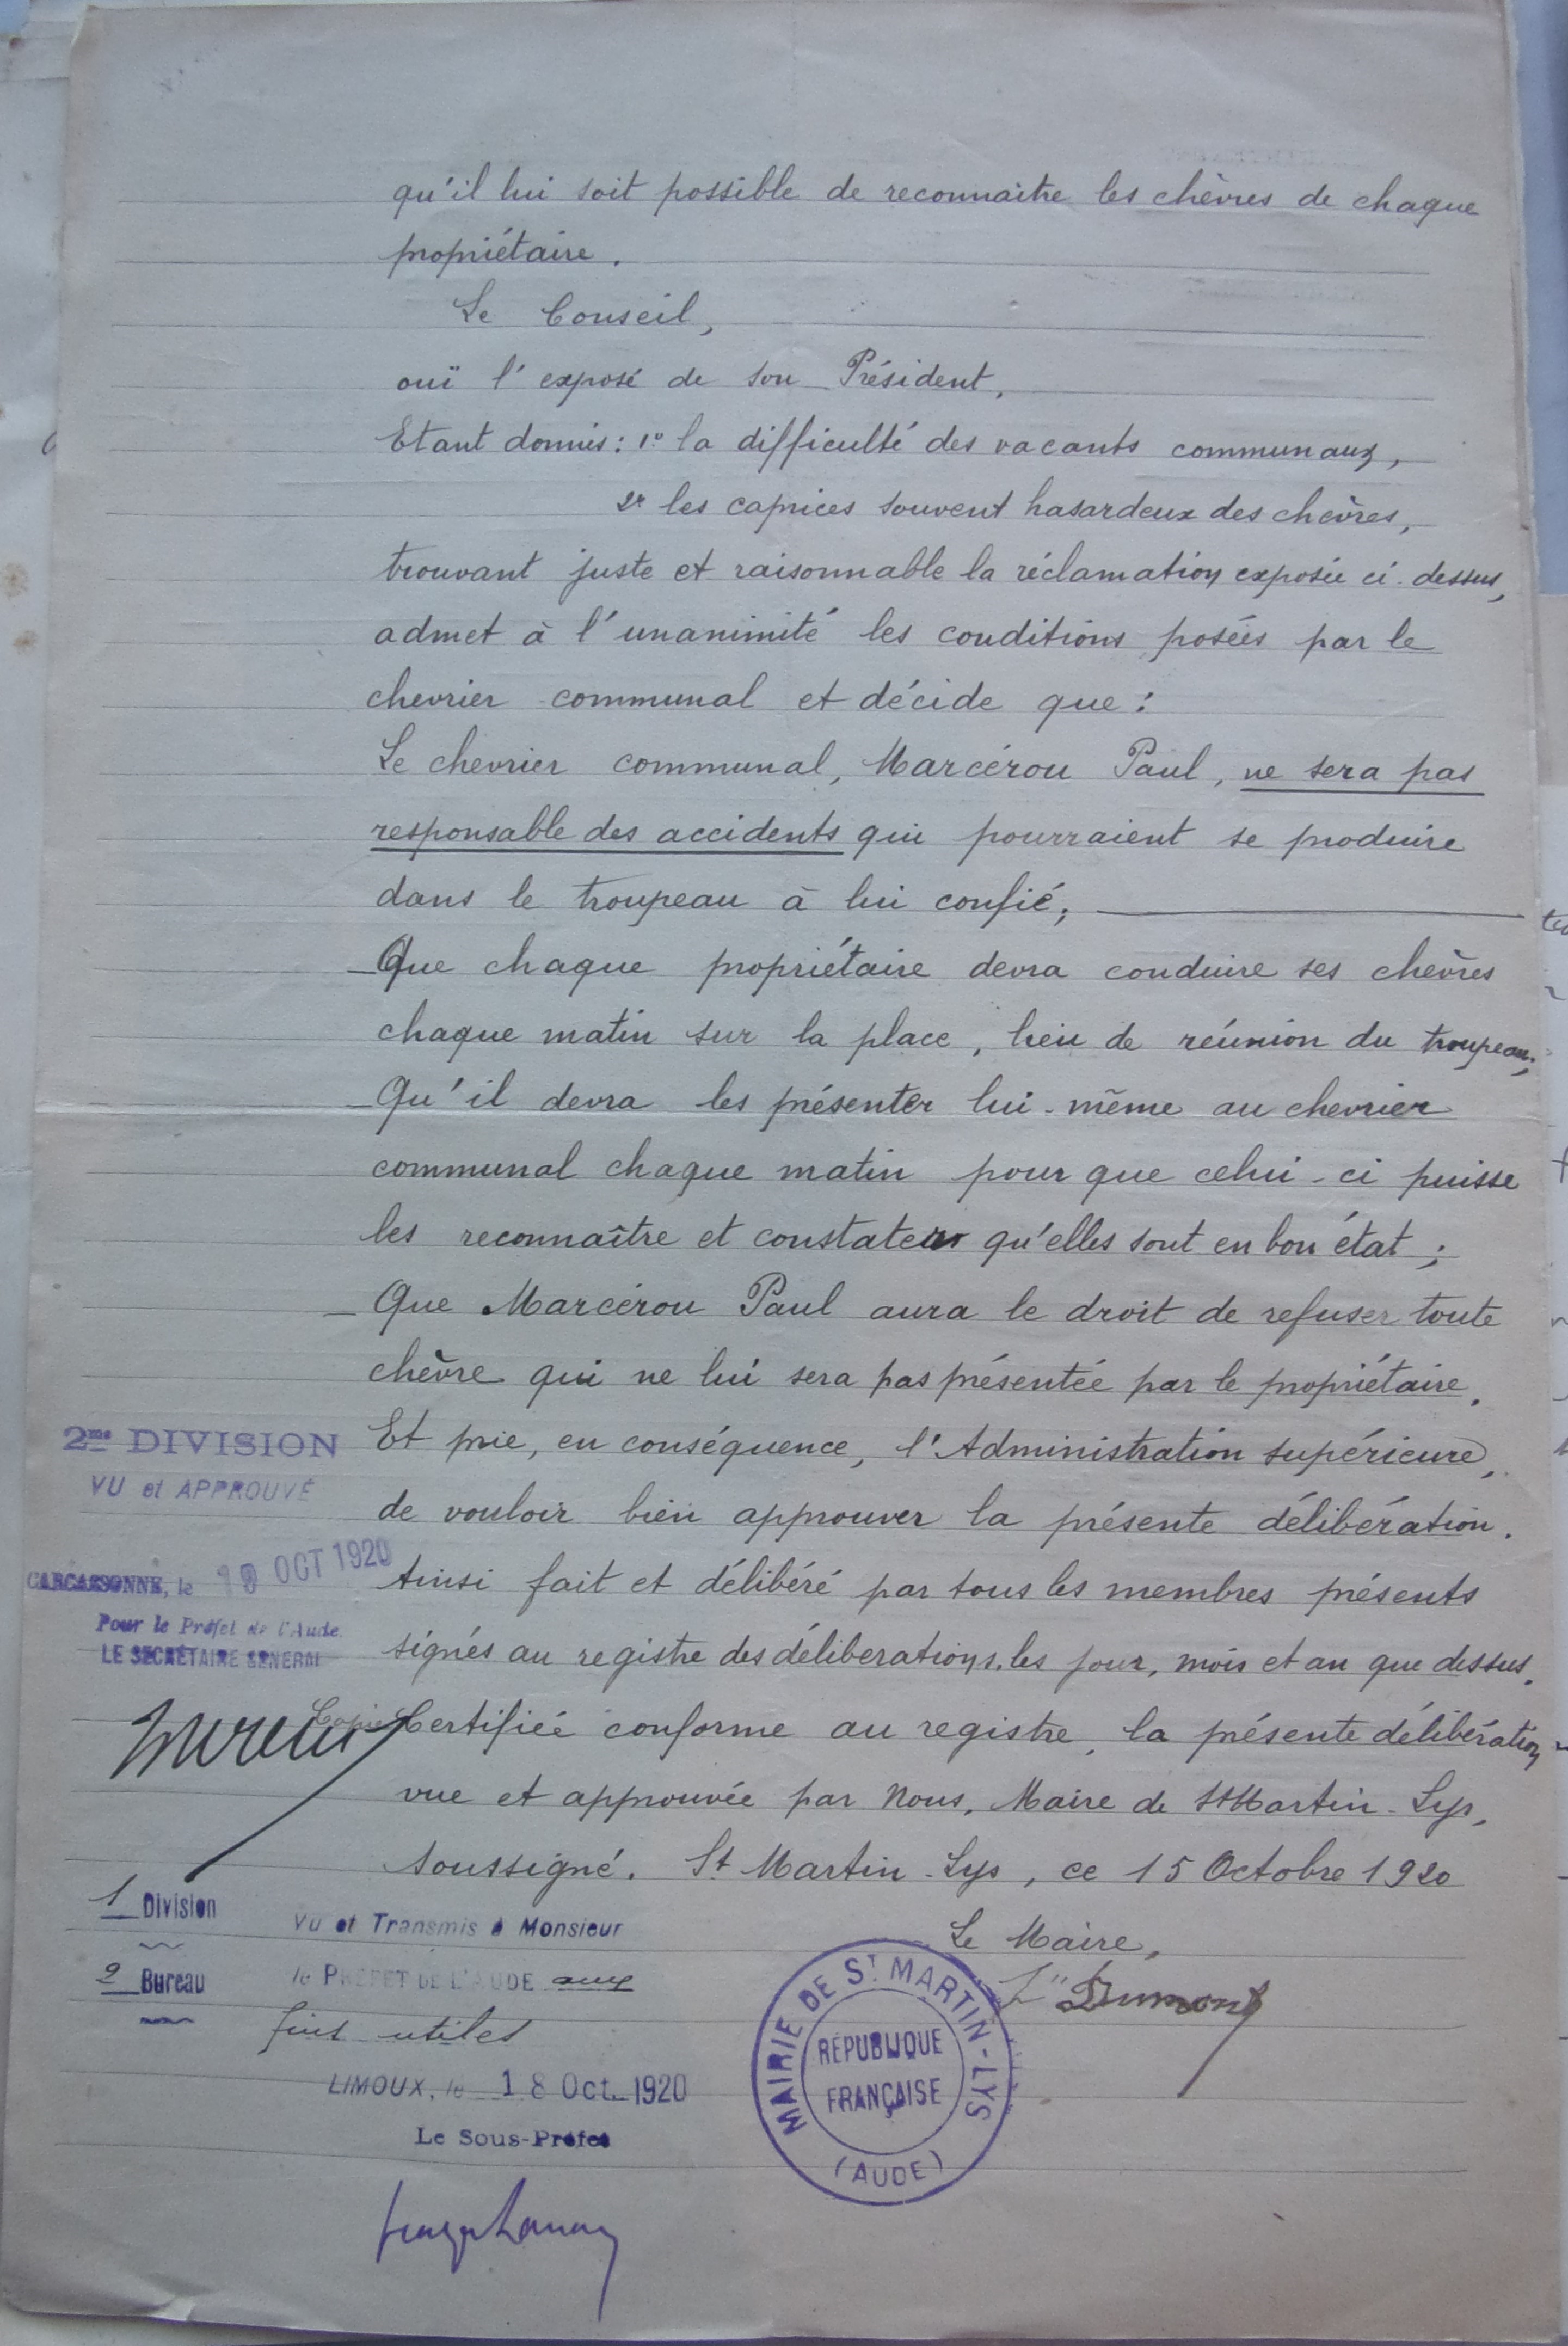 qu'il lui soit possible de reconnaitre les chèvres de chaque
propriétaire.
Le Conseil,
ouï l'exposé de son Président,
Etant donnés : 1° la difficulté des vacants communaux,
2° les caprices souvent hasardeux des chèvres,
trouvant juste et raisonnable la réclamation exposée ci-dessus,
admet à l'unanimité les conditions posées par le
chevrier communal et décide que :
Le chevrier communal, Marcérou Paul, ne sera pas
responsable des accidents qui pourraient se produire
dans le troupeau à lui confié;
_ Que chaque propriétaire devra conduire ses chèvres
chaque matin sur la place, lieu de réunion du troupeau;
_ Qu'il devra les présenter lui-même au chevrier
communal chaque matin pour que celui-ci puisse
les reconnaître et constater qu'elles sont en bon état ;
_ Que Marcérou Paul aura le droit de refuser toute
chèvre qui ne lui sera pas présentée par le propriétaire.
Et prie, en conséquence, l'Administration supérieure,
de vouloir bien approuver la présente délibération.
Ainsi fait et délibéré par tous les membres présents
signés au registre des déliberations, les jour, mois et an que dessus.
Copie Certifiée conforme au registre, la présente délibération
vue et approuvée par Nous, Maire de St Martin-Lys,
soussigné. St Martin-Lys, ce 15 Octobre 1920
Le Maire,
Dumont
2me DIVISION
VU et APPROUVÉ
CARCASSONNE, le 19 OCT 1920
Pour le Préfet de l'Aude
LE SECRÉTAIRE GÉNÉRAL
1 Division
2 Bureau
Vu et Transmis à Monsieur
le PRÉFET DE L'AUDE aux
fins utiles
LIMOUX, le 18 Oct. 1920
Le Sous-Préfet
MAIRIE DE ST MARTIN-LYS
RÉPUBLIQUE
FRANÇAISE
(AUDE)